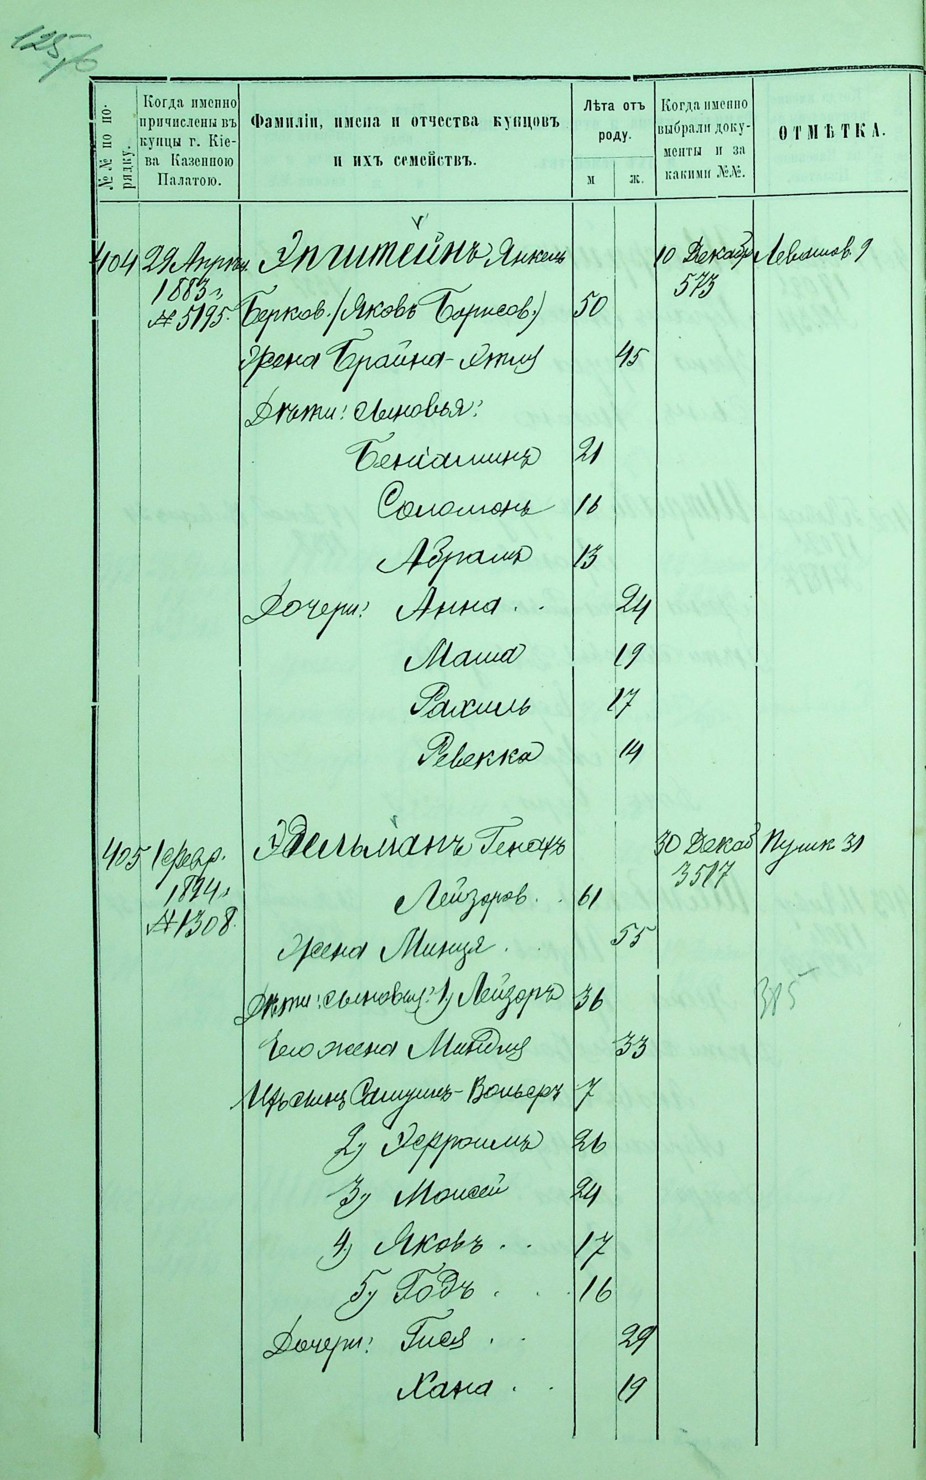 №№ по по-
рядку.
Когда именно
причислены въ
купцы г. Кіе-
ва Казенною
Палатою.
Фамиліи, имена и отчества купцовъ
и ихъ семействъ.
Лѣта отъ
роду.
м ж.
Когда именно
выбрали доку-
менты и за
какими №№.
ОТМѢТКА.
404 29 Апрѣл. Эпштейнъ Янкель 10 Декабр
1883 г. 573
№ 5195. Берков. /Яковъ Борисов./ 50
Жена Брайна- 45
Дѣти: сыновья:
Беніаминъ 21
Соломонъ 16
Абрамъ 13
Дочери: Анна . . 24
Маша 19
Рахиль 17
Ревекка 14
405 1 Февр. Эдельманъ Генохъ 30 Декаб Пушк 31
1894 г. 3517
№ 1308. Лейзоров. . 61
Жена Минця . . 55
Дѣти: сыновья: 1) Лейзоръ 36
385
Его жена Миндля 33
Ихъ сынъ Самуилъ- 7
2) Хефроимъ 26
3) Моисей 24
4) Яковъ . . 17
5) Годъ . . . 16
Дочери: Гися . . 29
Хана . . 19